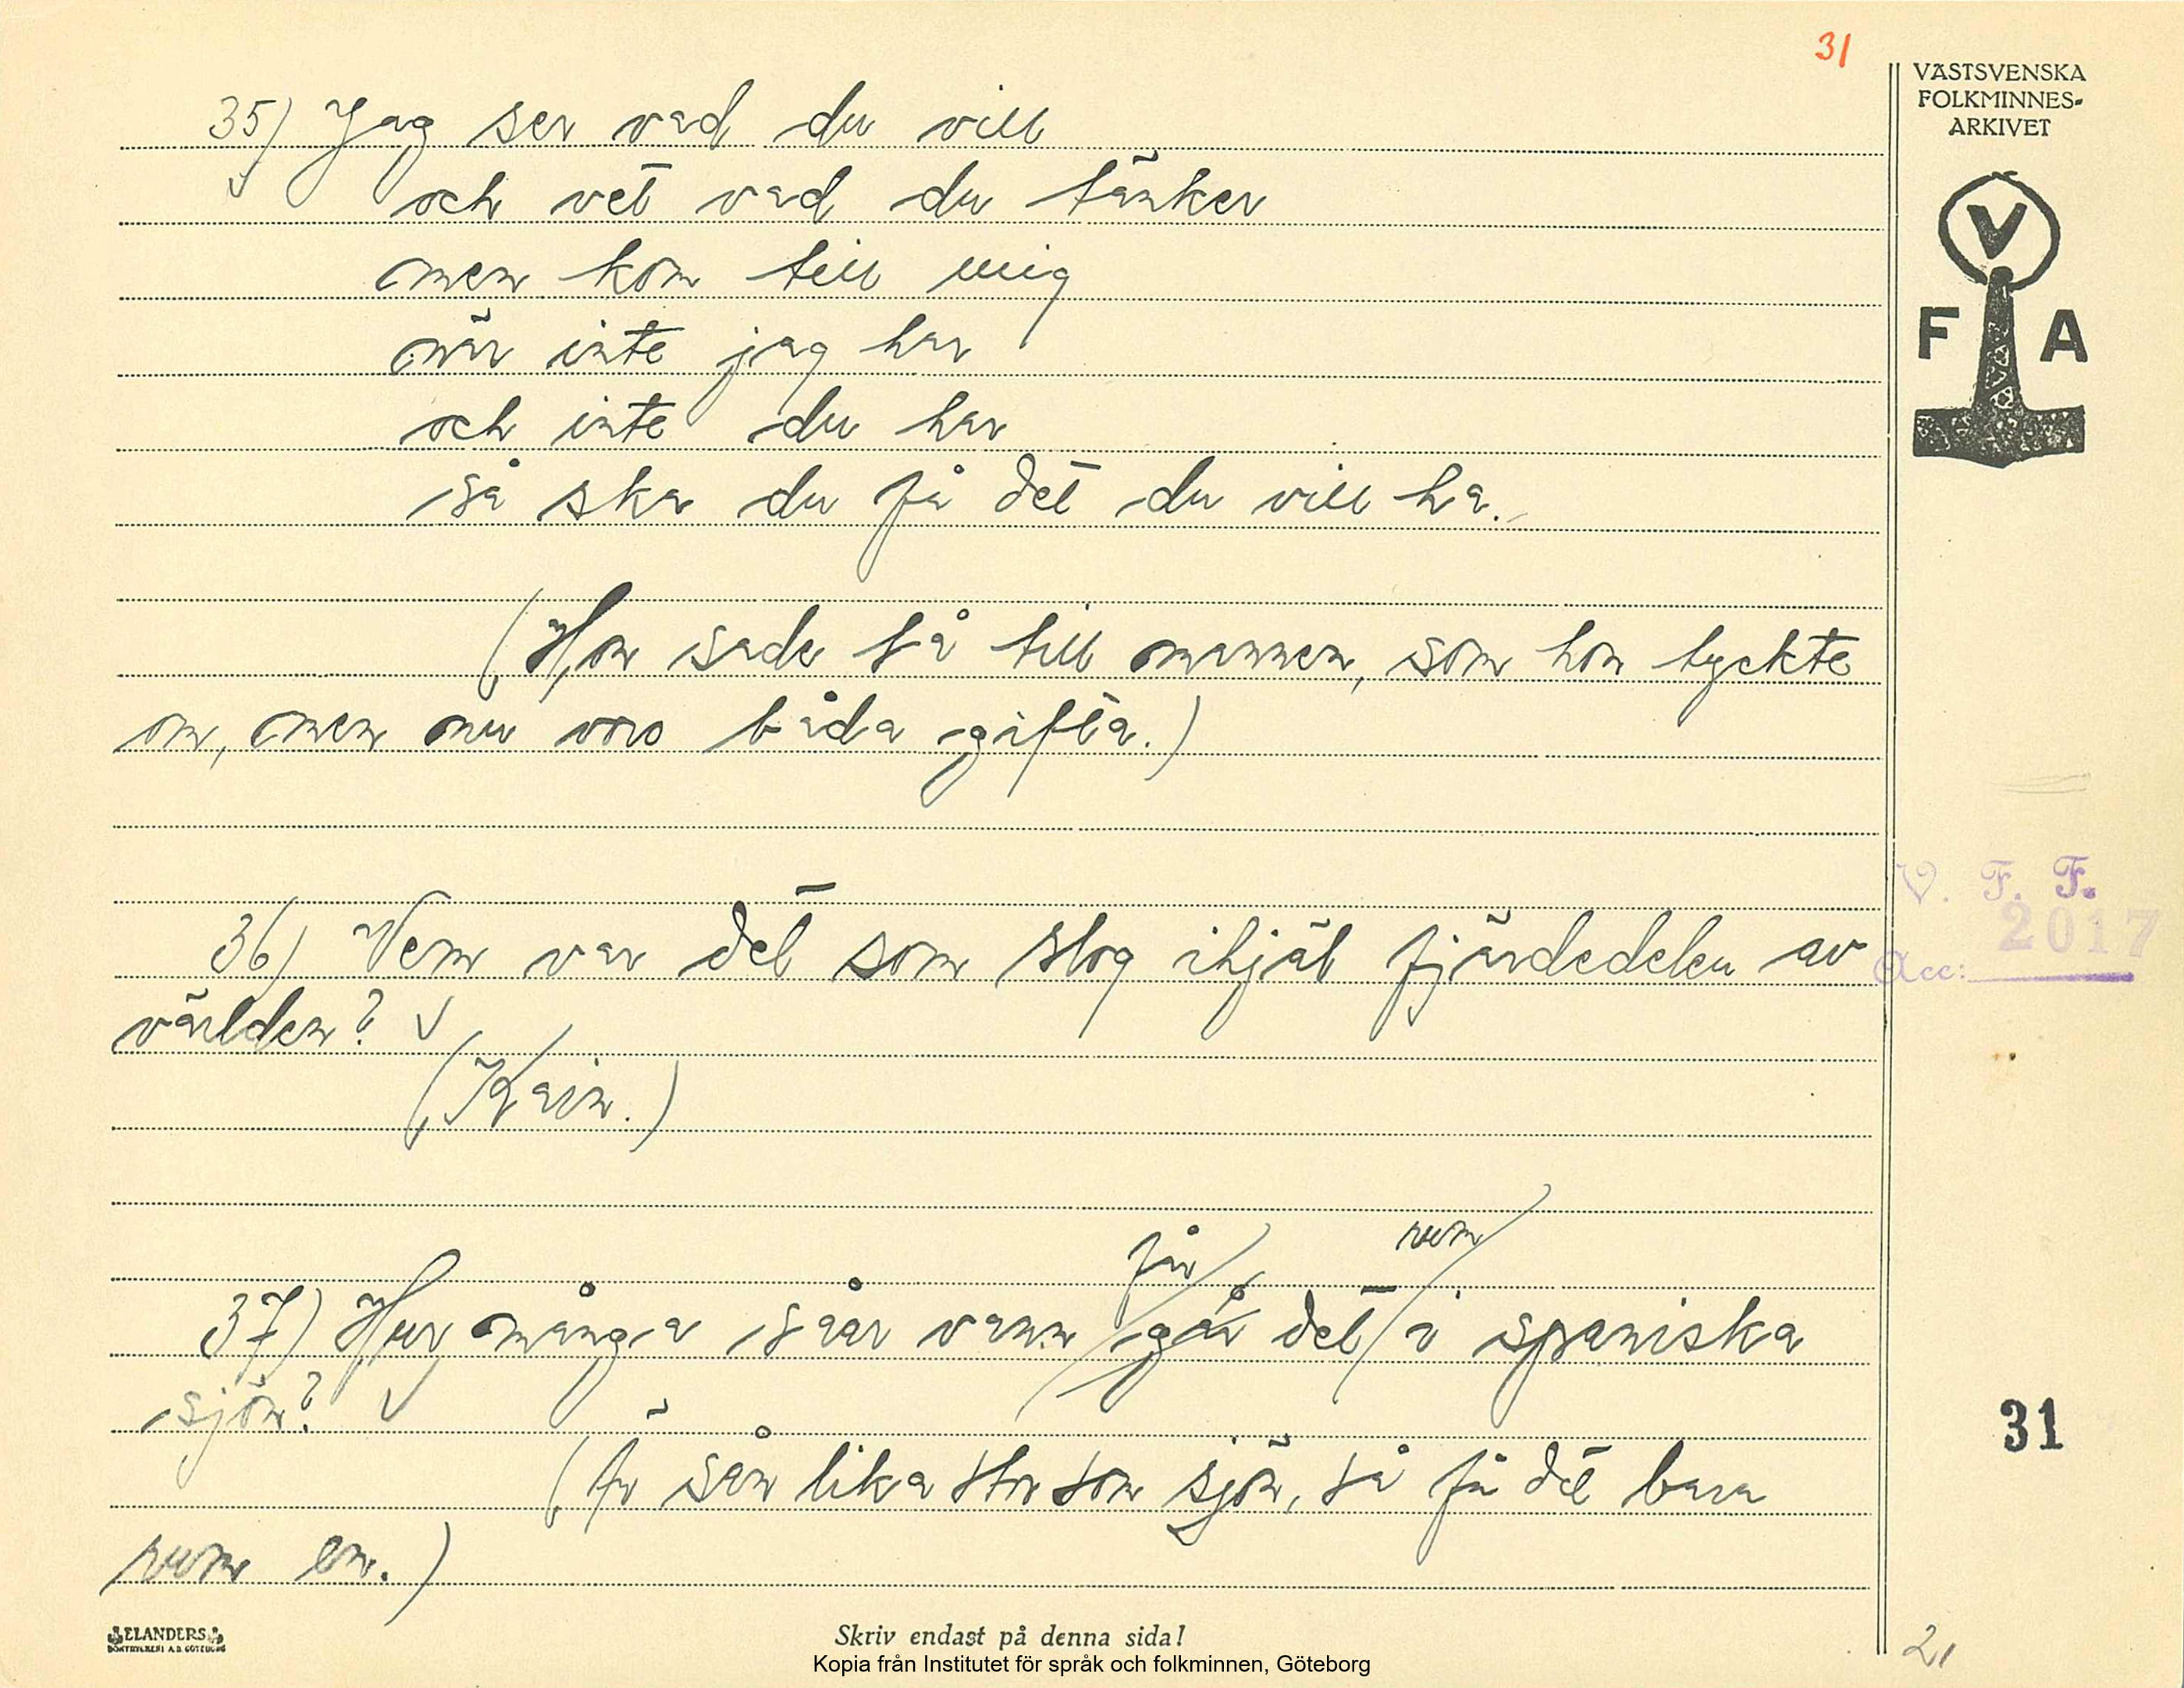 31
VÄSTSVENSKA
FOLKMINNES-
ARKIVET
V
F A
35) Jag ser vad du vill
och vet vad du tänker
men kom till mig
när inte jag har
och inte du har
så ska du få det du vill ha.
(Hon sade så till mannen, som hon tyckte
om, men nu voro båda gifta.)
V. F. F.
2017
Acc:
36) Vem var det som slog ihjäl fjärdedelen av
världen?
(Kain.)
får rum
37) Hur många såar vann går det i spaniska
sjön?
31
(Är sån lika stor som sjön, så få det bara
rum en.)
ELANDERS
BOKTRYCKERI A.B. GÖTEBORG
Skriv endast på denna sida!
21
Kopia från Institutet för språk och folkminnen, Göteborg